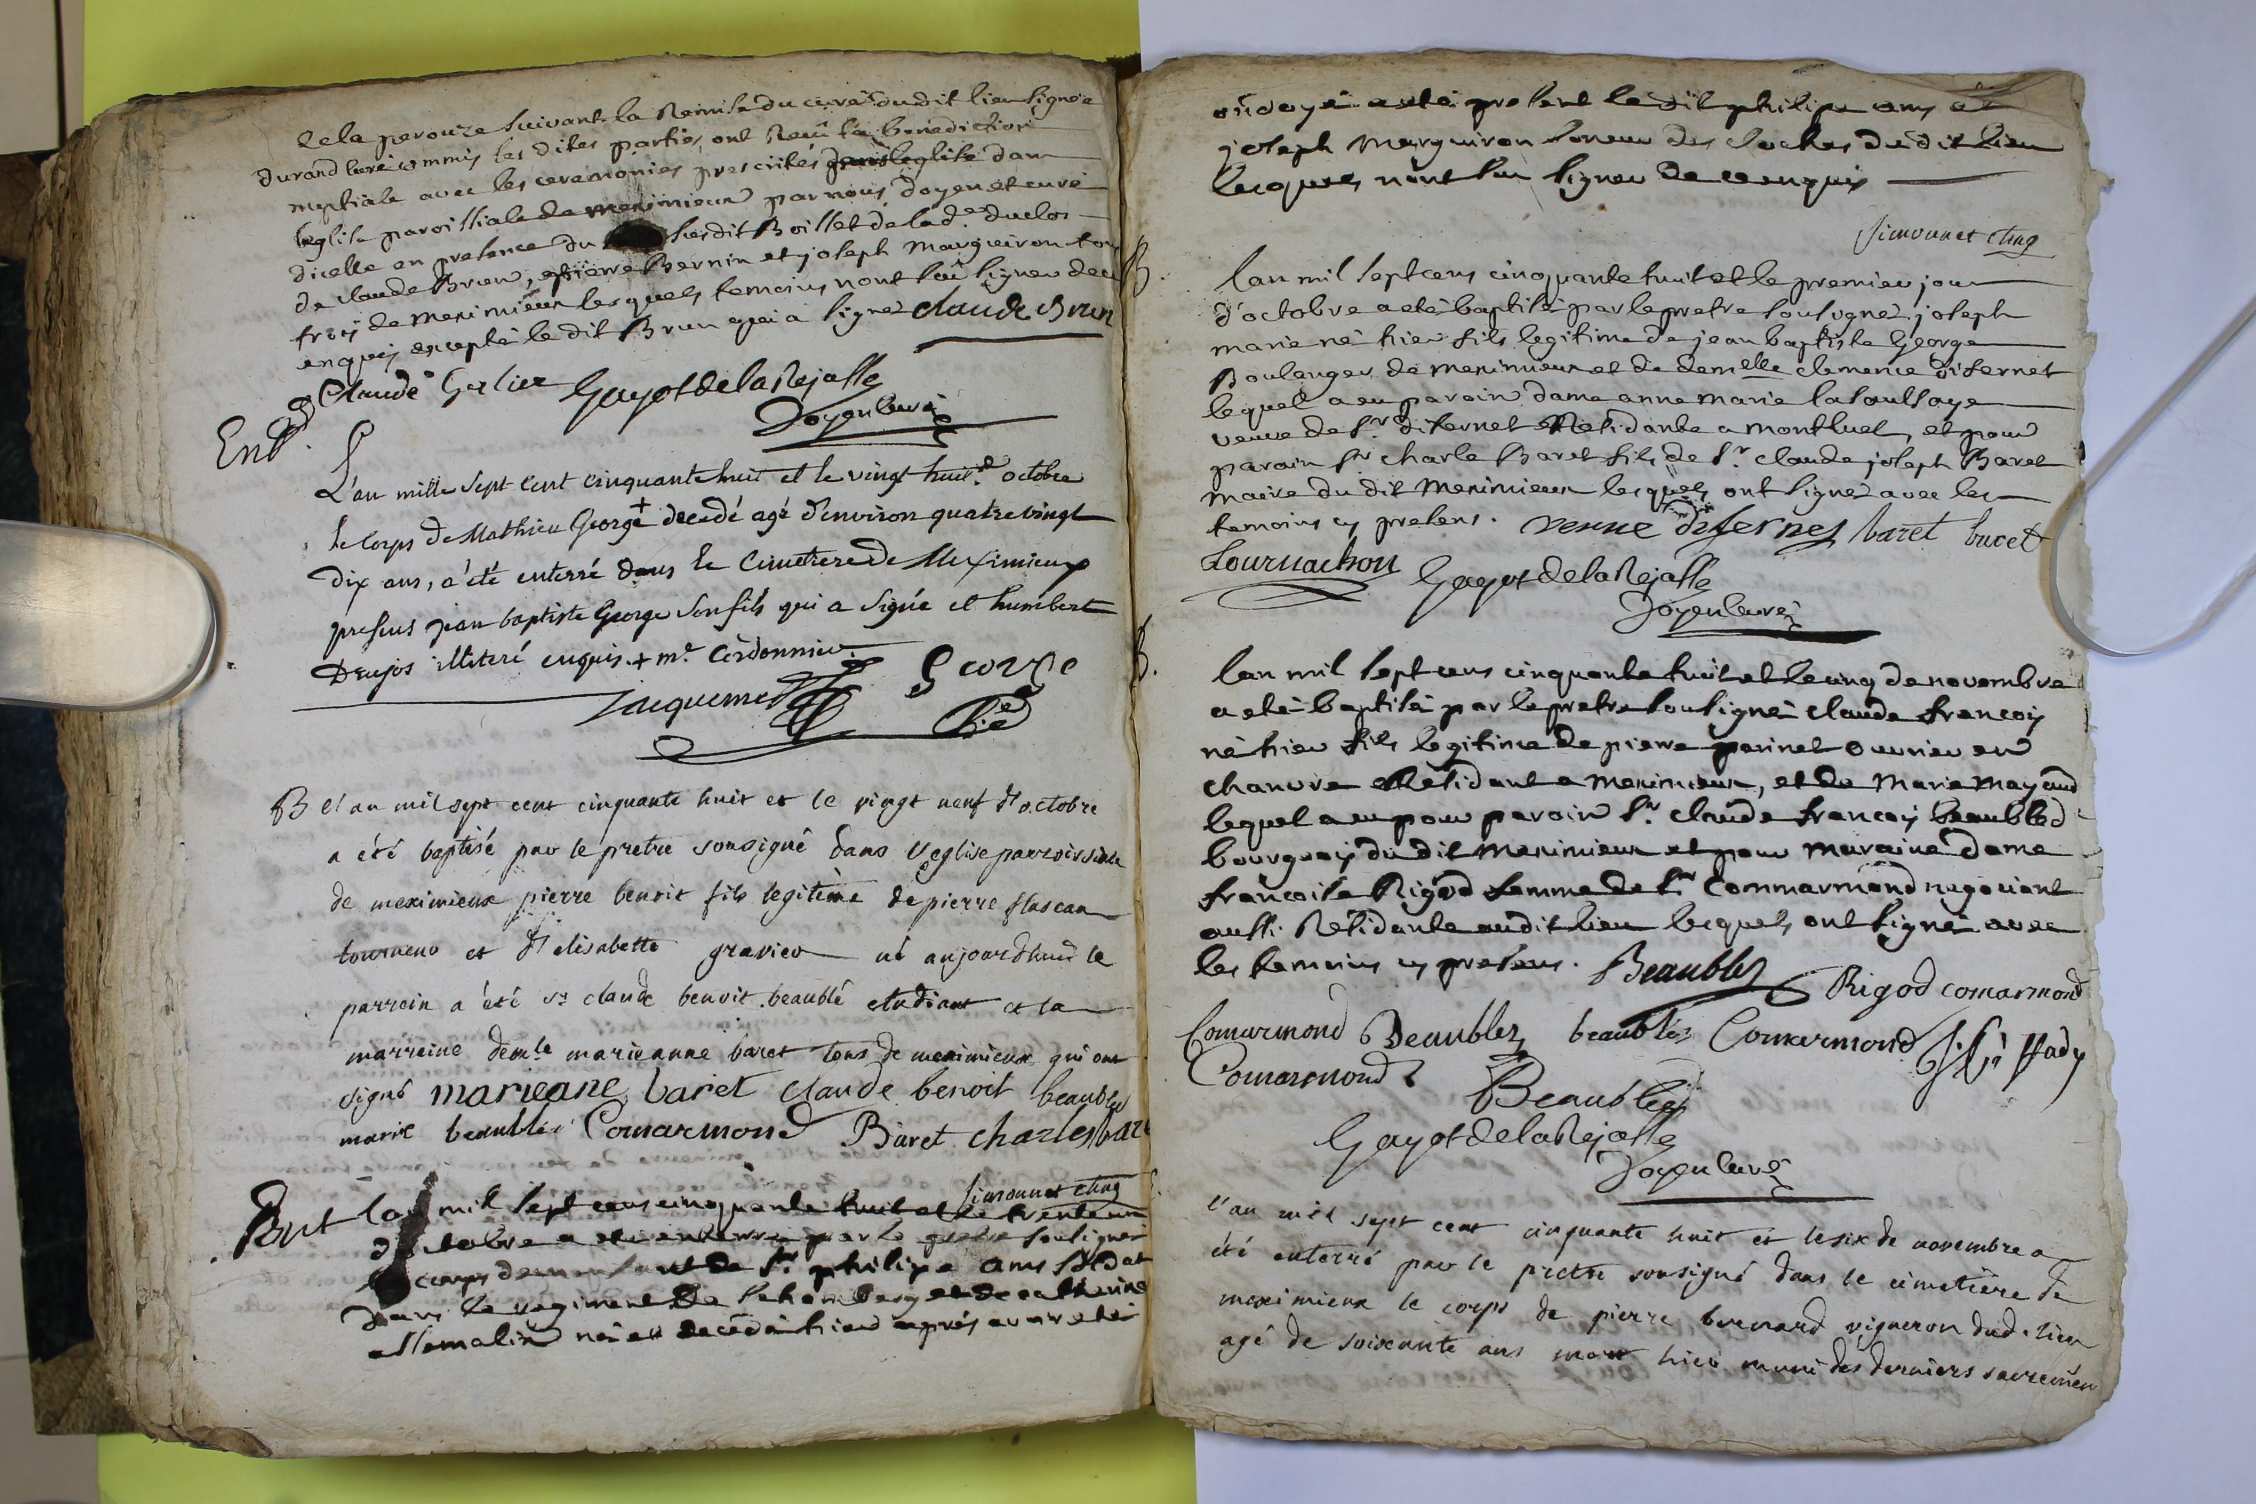 de la perouze suivant la Remise du curé dudit lieu signée
durand curé commis les dites parties ont Receu la bénédiction
nuptiale avec les ceremonies prescrites dans leglise dans
leglise paroissiale de meximieux par nous doyen et curé
dicelle en presence du susdit Boisset de lad.e duclos
de claude Brun, pierre Bernin et joseph marguiron tous
trois de meximieux lesquels temoins nont sçu signer de ce
enquis excepté le dit Brun qui a signé claude Brun
Claude Gerlier Gayot de la Rejasse
Doyen Curé
Ent.
L'an mille sept cent cinquante huit et le vingt huit.e octobre
le corps de Mathieu George + decedé agé d'environ quatre vingt
dix ans, a été enterré dans le Cimetiere de Meximieux
presens jean baptiste George son fils qui a signée et humbert
Deujos illiteré enquis. + m.e Cordonnier.
Jacquemet George
B l'an mil sept cent cinquante huit et le vingt neuf d'octobre
a été baptisé par le pretre sousigné dans l'eglise parroissiale
de meximieux pierre benoit fils legitime de pierre flascan
tourneur et d'elisabette gravier né aujourdhui le
parrein a été sr claude benoit beaublé etudiant et la
marreine dem.lle marieanne baret tous de meximieux qui ont
signé marieane baret claude benoit beaublez
marie beaublé Comarmond Baret charles baret
Simonnet
Ent lan mil sept cens cinquante huit et le trente un
d'octobre a eté enterré par le pretre soussigné
le corps dun enfant de Sr. philipe ams soldat
dans le regiment de Schomberg et de catherine
allemalin né et decedé hier après avoir eté
ondoyé a eté présent le dit philipe ams et
joseph marguiron soneur des cloches du dit lieu
lesquels nont sçu signer de ce enquis
Simonnet
B. lan mil sept cens cinquante huit et le premier jour
d'octobre a eté baptisé par le pretre soussigné joseph
marie né hier fils legitime de jean baptiste George
Boulanger de meximieux et de demelle clemence difernet
lequel a eu paroin dame anne marie lasaulsaye
veuve de Sr. difernet Residante a montluel, et pour
parain Sr charle Baret fils de Sr. claude joseph Baret
maire du dit meximieux lesquels ont signé avec les
temoins cy presens. veuve difernet baret bucet
Tournachon Gayot de la Rejasse
Doyen Curé
B. lan mil sept cens cinquante huit et le cinq de novembre
a eté baptisé par le pretre soussigné claude francois
né hier fils legitime de pierre perinet ouvrier en
chanvre Residant a meximieux, et de marie mayand
lequel a eu pour paroin Sr. claude francois beaubled
bourgeois du dit meximieux et pour maraine dame
francoise Rigod femme de Sr Commarmond negotiant
aussi Residante audit lieu lesquels ont signé avec
les temoins cy presens. Beaublez Rigod comarmond
Comarmond Beaublez beaublez Comarmond
Comarmond Beaublez
Gayot de la Rejasse
Doyen Curé
l'an mil sept cent cinquante huit et le six de novembre a
été enterré par le pretre sousigné dans le cimetière de
meximieux le corps de pierre bernard vigneron dud. lieu
agé de soixante ans mort hier muni des derniers sacremen